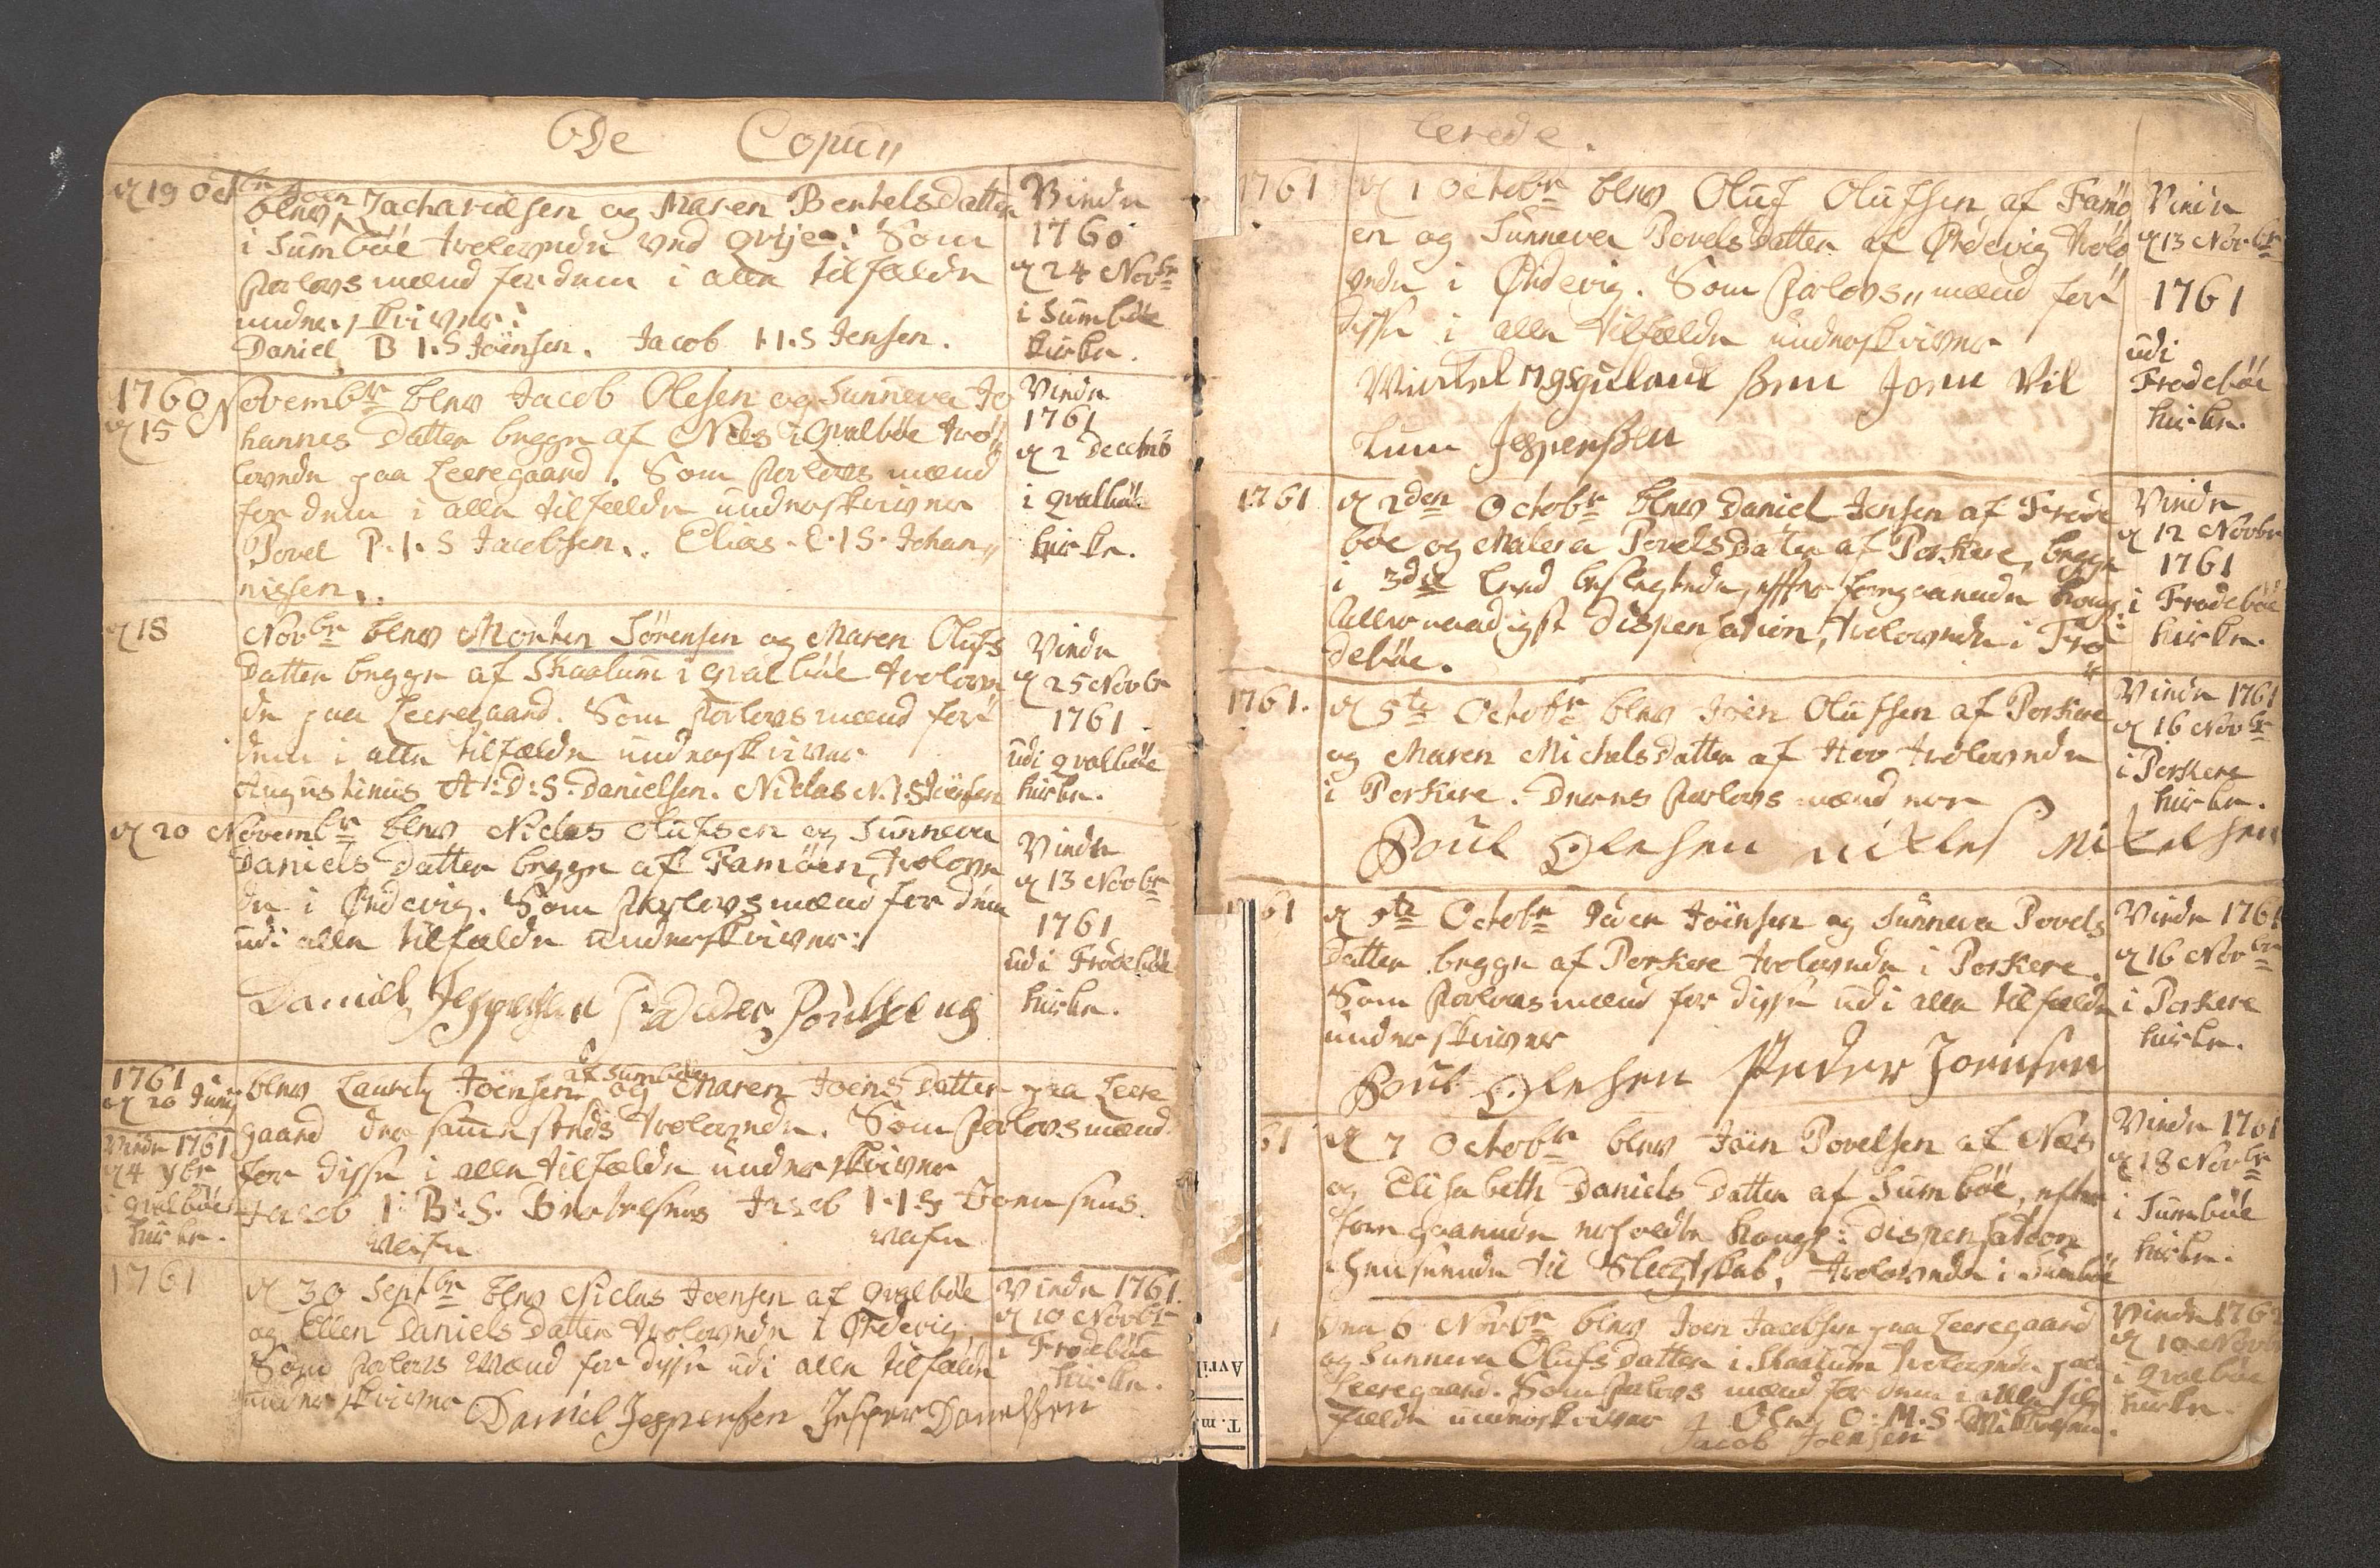 De Copu„
d 19 Octbr
blev Joen Zachariesen og Maren Bertels datter
i Sumbøe trolovede ved
Som
forlovsmænd for dem i alle tilfælde
underskriver:
Daniel B I. S Jöensen. Jacob I. I. S Jensen.
Viede
1760
d 24 Novbr
i Sumbøe
kirke.
1760
d 15
Novembr blev Jacob Olesen og Sunneva Jo
hannes datter begge af Nes i Qvalbøe tro„
lovede paa Leeregaard. Som forlovs mænd
for dem i alle tilfælde underskriver
Povel P. I. S Jacobsen.. Elias. E. I S. Johan„
nissen..
Viede
1761
d 2 Decemb
i qvalbøe
kirke.
d 18
Novbr blev Morten Sörensen og Maren Olufs
datter begge af Skaalum i qvalbøe trolove
de paa Leeregaard. Som forlovsmænd for
dem i alle tilfælde underskriver
Augustinus A: D: S. Danielsen. Niclas N. I. S Jöensen
Viede
d 25 Novbr
1761
udi qvalbøe
kirke.
d 20 Novembr blev Niclas Olufsen og Sunneva
Daniels datter begge af Famöen, trolove
de i Ördevig. Som forlovsmænd for dem
udi alle tilfælde underskriver:
Daniel Jespersen
Viede
d 13 Novbr
1761
udi Frodebøe
kirke.
1761
d 20 Junij
blev Lauretz Jöensen af Sumbøe og Maren Joens datter paa Leere
gaard der sammesteds trolovede. Som forlovsmænd
for disse i alle tilfælde underskriver
Jacob I: B: S. Jacob I. I. S Joensens
Viede 1761
d 4
i qvalbøe
kirke.
1761
d 30 Septbr blev Niclas Joensen af qvalbøe
og Ellen Daniels datter trolovede i Ördevig
Som forlovs Mænd for disse udi alle tilfælde
underskriver Daniel Jespersen Jesper Danelsen
Viede 1761.
d 10 Novbr
i Frodebøe
kirke.
lerede.
1761
d 1 Octobr blev Oluf Olufsen af Famö
en og Sunneva Povels datter af Ördevig trolo
vede i Ördevig. Som forlovs„ mænd for
disse i alle tilfælde underskriver
Joen Vil
lum Jespersen
Viede
d 13 Novbr
1761
udi
Frodebøe
kirke.
1761
d 2den Octobr blev Daniel Jensen af Frode
bøe og Malena Povels datter af Porkere, begge
i 3die Leed beslegtede, efter foregaaende kong:
allernaadigst Dispensation, trolovede i Fro„
debøe.
Viede
d 12 Novbr
1761
i Frodebøe
kirke.
1761.
d 5te Octobr blev Jöen Olufsen af Porkere
og Maren Michels datter af Hov trolovede
i Porkere. Deres forlovs mænd ere
Poul Olesen Niklas Mikelsen
Viede 1761
d 16 Novbr
i Porkere
kirke.
61
d 5te Octobr Peder Jöensen og Sunneva Povels
datter begge af Porkere trolovede i Porkere.
Som forlovsmænd for disse udi alle tilfælde
underskriver
Poul Olesen Peder Joensen
Viede 1761
d 16 Novbr
i Porkere
kirke.
61
d 7 Octobr blev Jöen Povelsen af Næs
og Elisabeth Daniels datter af Sumbøe, efter
foregaaende erholdte kongl: dispensation
henseende til Slegtskab, trolovede i Sumbøe
Viede 1761
d 18 Novbr
i Sumbøe
kirke.
1
Den 6 Novbr blev Joen Jacobsen paa Leeregaard
og Sunneva Olufs datter i Skaalum trolovede paa
Leeregaard. Som forlovs mænd for dem i alle til
fælde underskriver
Jacob Joensen
Viede 176
d 10 Novbr
i qvalbøe
kirke.
Avril
T. m.